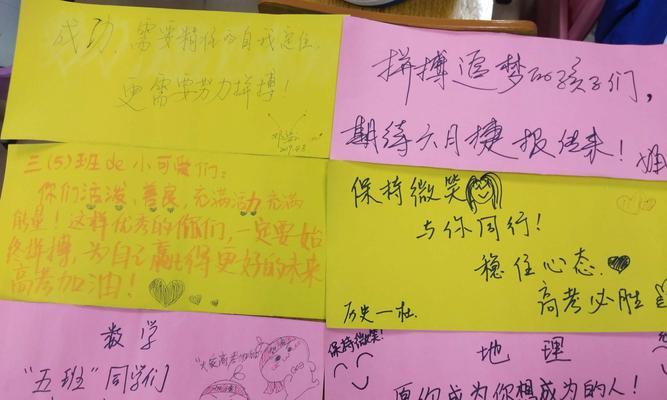 成功,需要精准的自我定位,
更需要努力拼搏!
拼搏追梦的孩子们,
期待六月捷报传来!
三(5)班de小可爱们:
你们活泼、善良,充满活力,充满
能量!这样优秀的你们,一定要始
终拼搏,为自己赢得更好的未来
高考加油!
保持微笑
与你同行!
稳住心态.
高考必胜
历史一杜
数学
"五班"同学们
"大家高考加油"
保持微笑!
地理
愿你成为你想成为的人!